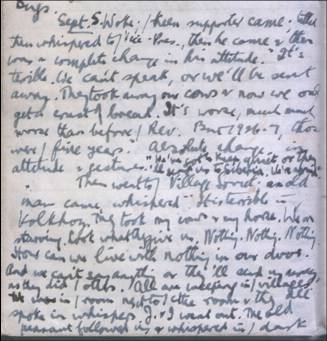 Days.
Sept. 5. Woke. / keen supporter came. Ellen
then whispered to / Vice-Pres, then he came & there
was a complete change in his attitude. "It's
terrible. We can't speak, or we'll be sent
away. They took away our cows & now we only
get a crust / bread. It's worse, much much
worse than before / Rev. But 1926-7, those
were / fine years." Absolute change in
attitude & gesture. "We've got to keep quiet or they
'll send us to Siberia.
Then went to / Village Soviet, an old
man came, whispered. It is terrible in
Kolkhoz. They took my cows & my horse. We are
starving. Look what they give us. Nothing. Nothing. Nothing.
How can we live with nothing in our dvor.
And we can't say anything or they'll send us away
as they did / others. All are weeping in / villages,
He was in / room next to / the room & they all
spoke in whispers. J. & I went out. The old
peasant followed us & whispered in / dark